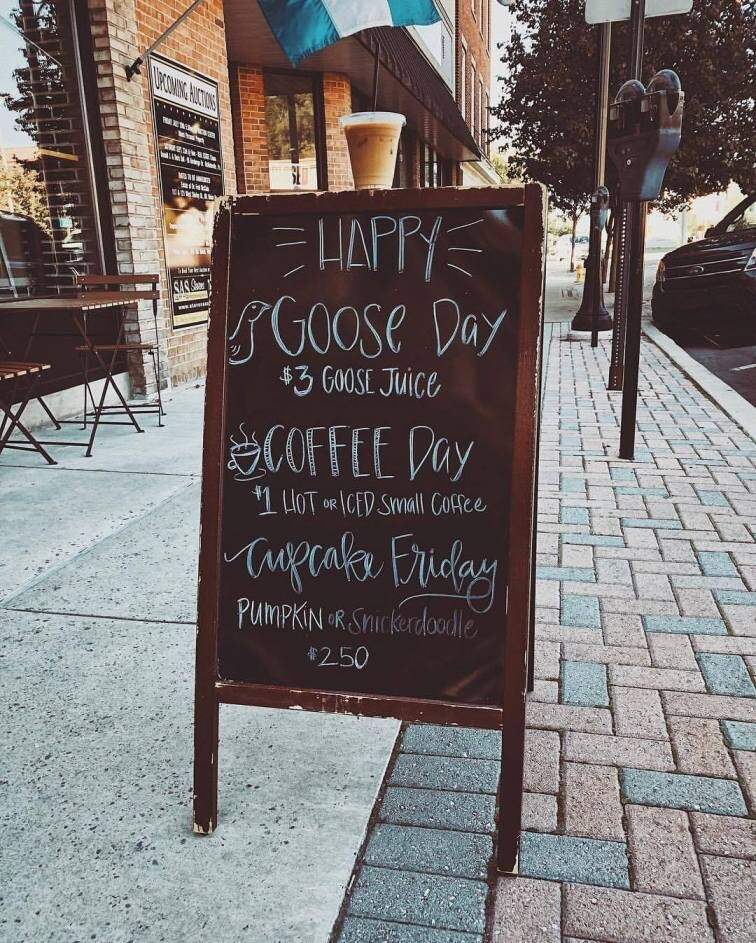 UPCOMING AUCTIONS
HAPPY
GOOSE Day
$3 GOOSE Juice
COFFEE Day
$1 HOT OR ICED Small Coffee
Cupcake Friday
PUMPKIN OR Snickerdoodle
$2.50